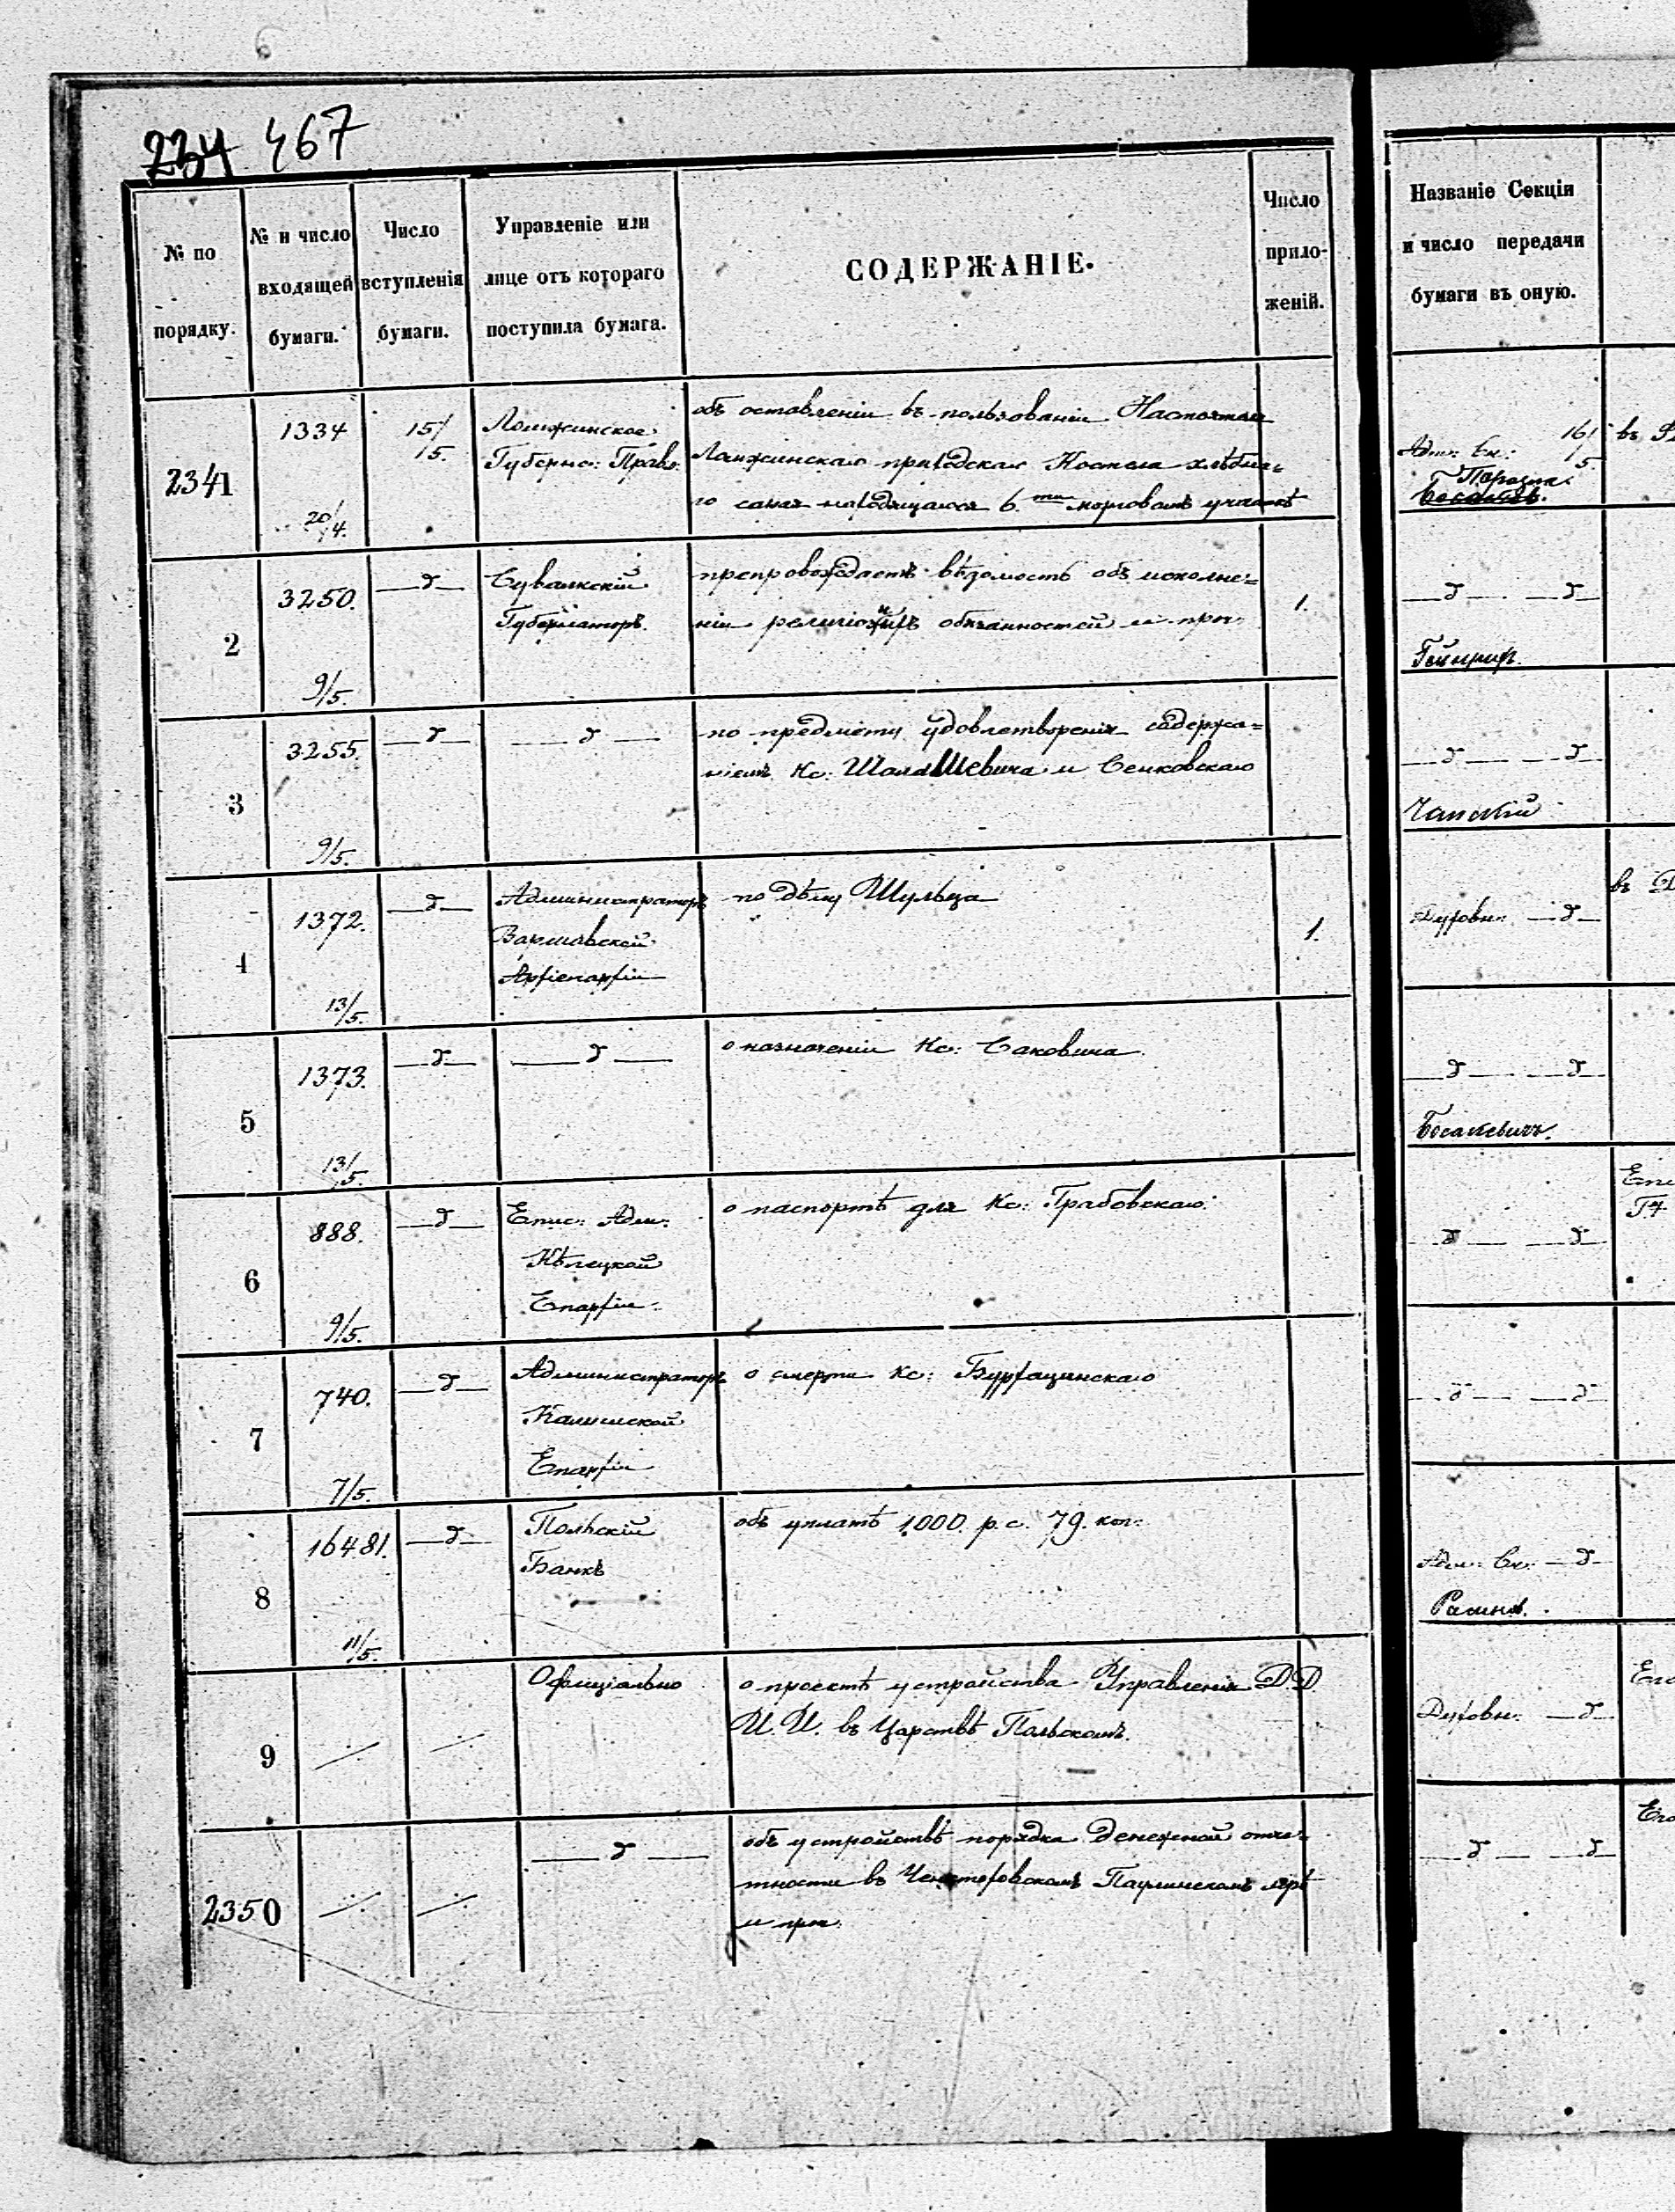 234 467
№ по порядку.
№ и число входящей бумаги.
Число вступленія бумаги.
Управленіе или лице отъ котораго поступила бумага.
СОДЕРЖАНІЕ.
Число приложеній.
Названіе Секціи и число передачи бумаги въ оную.
2341
1334
20/4.
15/
15.
Ломжинское
Губернс: Правл:
объ оставленіи въ пользованіи Настоятеля
Ломжинскаго приходскаго Костела
го сада находящагося 6.ти морговомъ участкѣ
Адм: Ск: 16/5.
въ
2
3250.
9/5.
—д—
Сувалкскій
Губернаторъ.
препровождаетъ вѣдомость объ исполне=
ніи религіозныхъ обязанностей и проч.
1.
—д— —д—
Гейнрих.
3
3255.
9/5.
—д—
—д—
по предмету удовлетворенія содержа=
ніемъ Кс: и Сенковскаго
—д— —д—
Чапскій
4
1372.
13/5.
—д—
Администраторъ
Варшавской
Архіепархіи
по дѣлу Шульца
1.
Духовн: —д—
въ
5
1373.
13/5.
—д—
—д—
о назначеніи Кс: Саковича.
—д— —д—
Босакевичъ.
6
888.
9/5.
—д—
Епис: Адм:
Кѣлецкой
Епархіи.
о паспортѣ для Кс: Грабовскаго.
—д— —д—
7
740.
7/5.
—д—
Администраторъ
Калишской
Епархіи
о смерти Кс: Бурхацинскаго
—д— —д—
8
16481.
11/5.
—д—
Польскій
Банкъ
объ уплатѣ 1000. р. с. 79. коп:
Адм: Ск: —д—
9
Офиціально
о проектѣ устройства Управленія Д.Д.
И.И. въ Царствѣ Польскомъ.
Духовн: —д—
2350
—д—
объ устройствѣ порядка денежной отче=
тности въ Ченстоховскомъ Паулинскомъ мрѣ
и проч.
—д— —д—